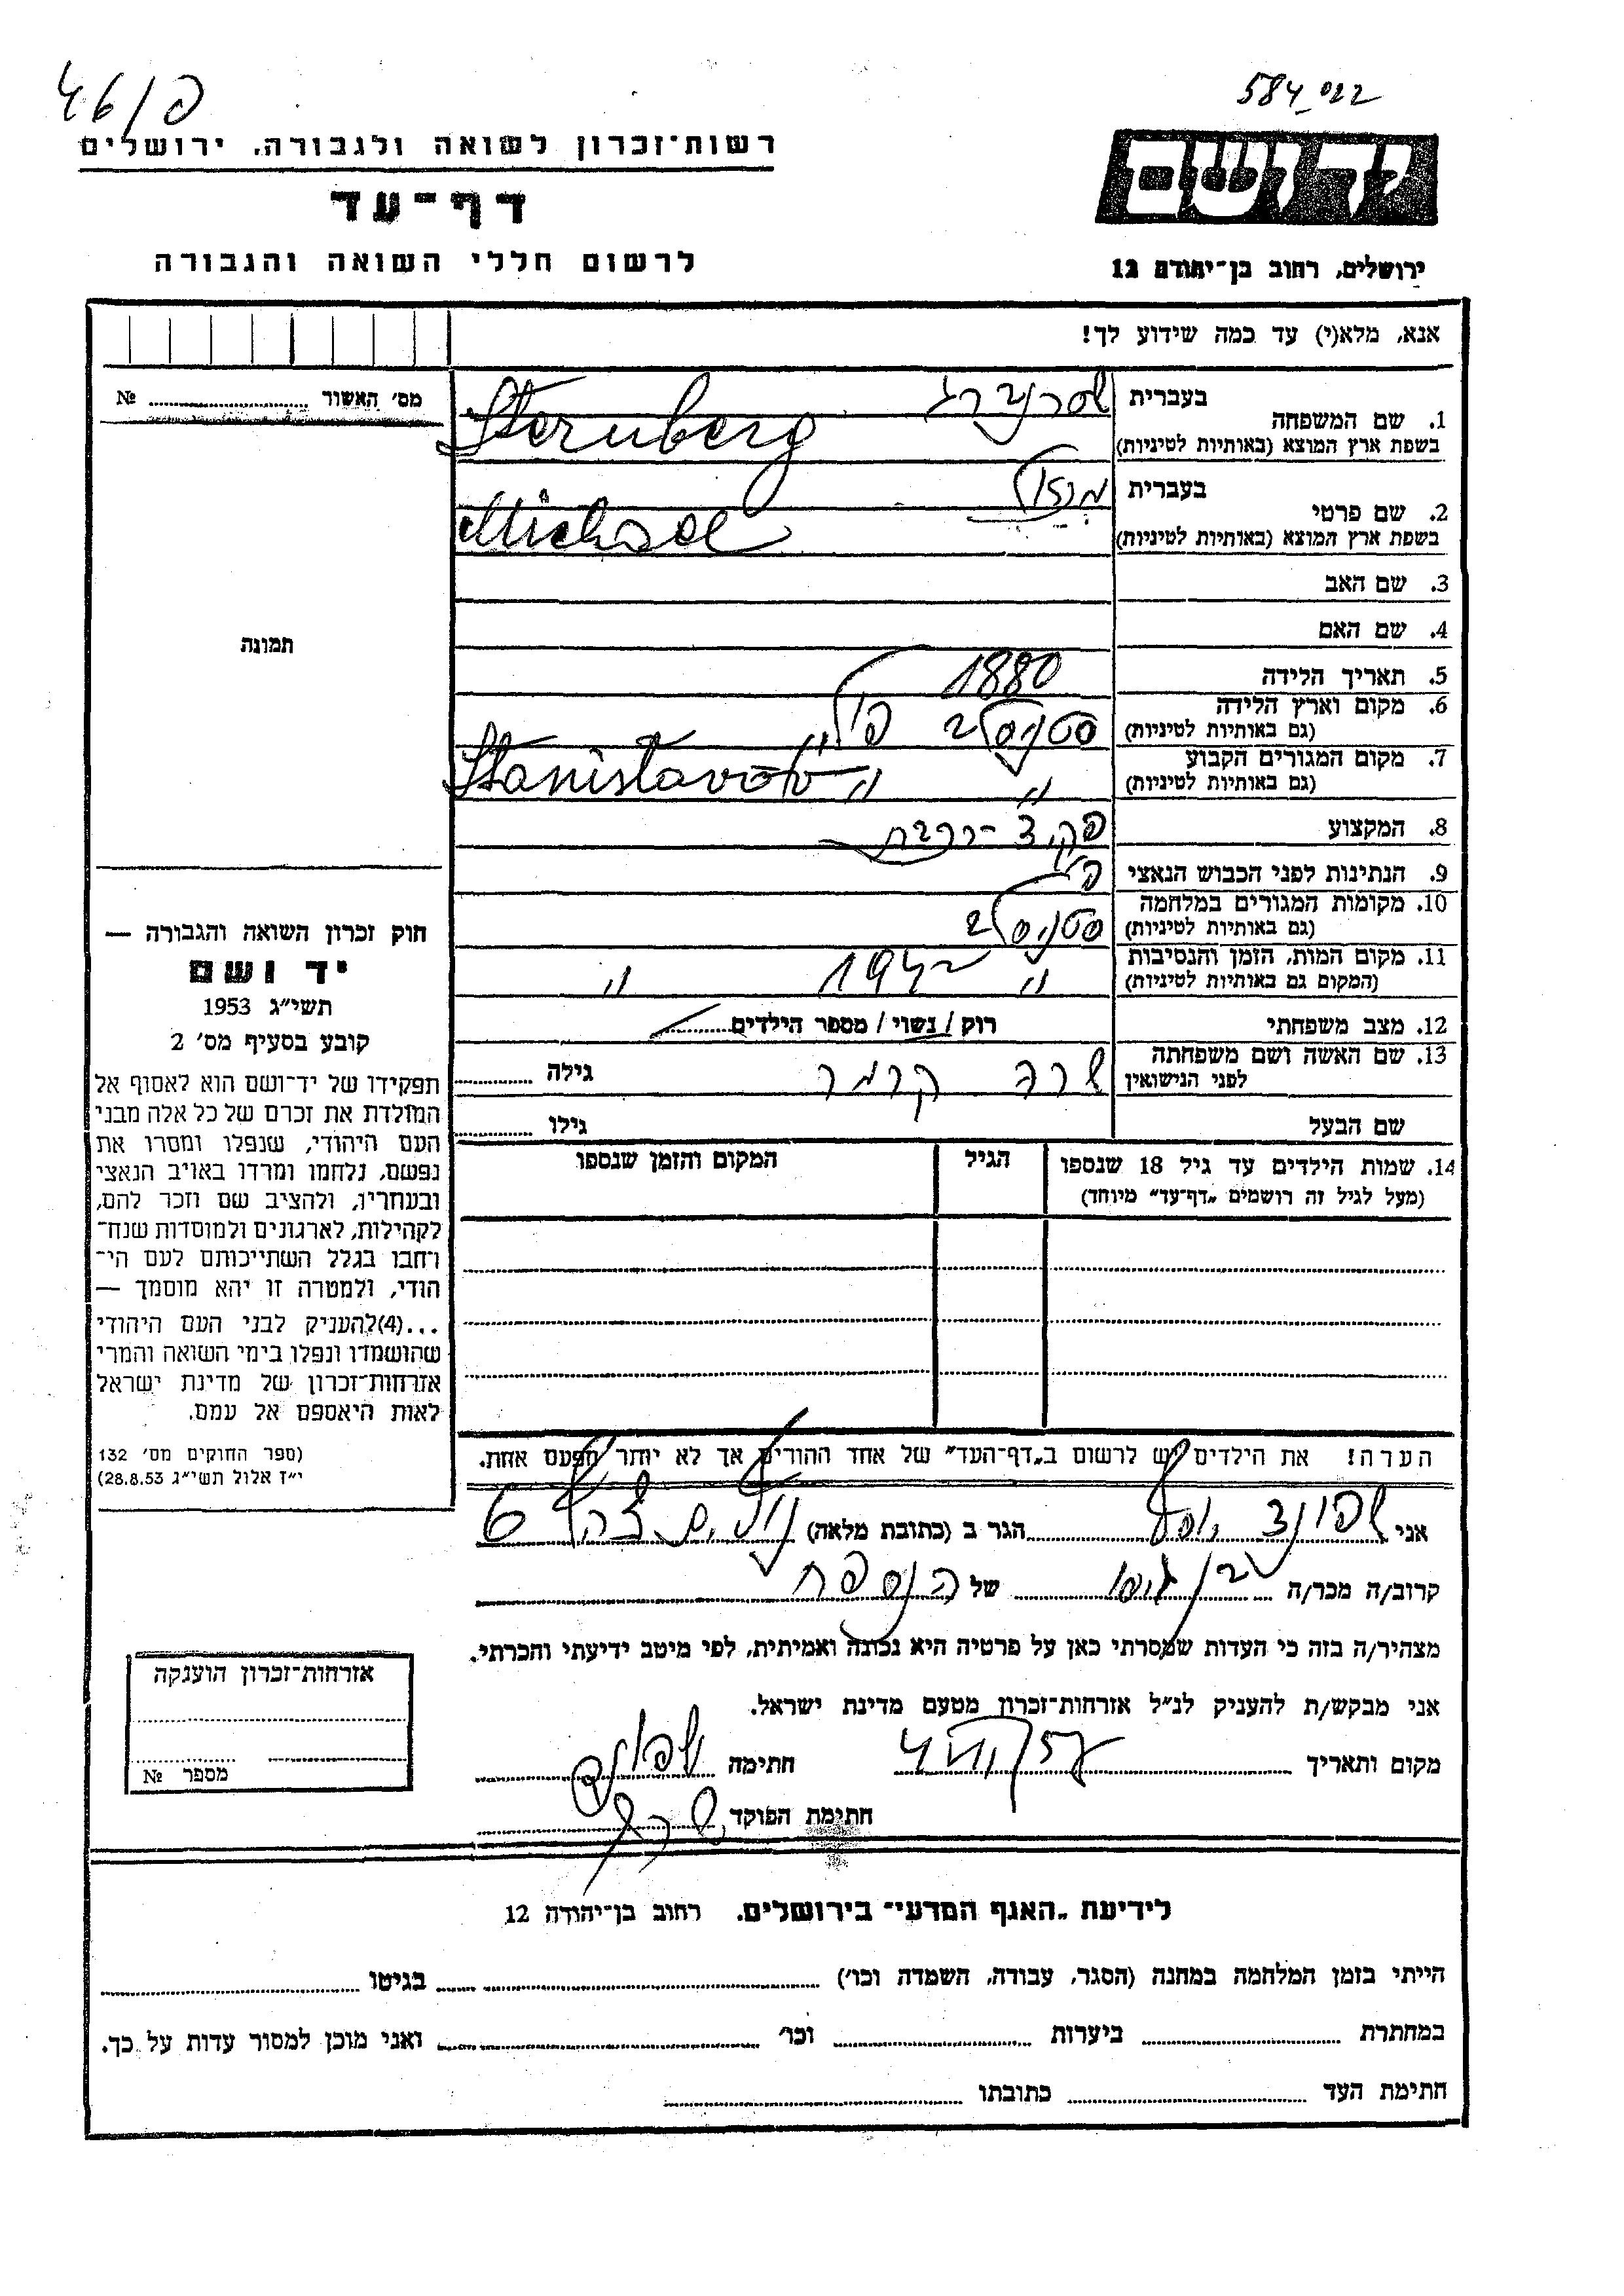 46/פ
584 ש״ככ
רשות־זכרון לשואה ולגבורה, ירושלים
יד ושם
דף־עד
לרשום חללי השואה והגבורה
ירושלים, רחוב בן־יהודה 12
אנא, מלא(י) עד כמה שידוע לך!
מס׳ האשור ........ №
תמונה
1. שם המשפחה
בעברית שטרנברג
בשפת ארץ המוצא (באותיות לטיניות) Sternberg
2. שם פרטי
בעברית מנדל
בשפת ארץ המוצא (באותיות לטיניות) Michael
3. שם האב
4. שם האם
5. תאריך הלידה 1880
6. מקום וארץ הלידה סטניסלב פולין
(גם באותיות לטיניות)
7. מקום המגורים הקבוע " "
(גם באותיות לטיניות) Stanislavov
8. המקצוע פקיד־רכבת
9. הנתינות לפני הכבוש הנאצי פול׳
10. מקומות המגורים במלחמה סטניסלב
(גם באותיות לטיניות)
11. מקום המות, הזמן והנסיבות " 1942 "
(המקום גם באותיות לטיניות)
12. מצב משפחתי רוק / נשוי / מספר הילדים
13. שם האשה ושם משפחתה שרה קרמר גילה
לפני הנישואין
שם הבעל גילו
14. שמות הילדים עד גיל 18 שנספו הגיל המקום והזמן שנספו
(מעל לגיל זה רושמים „דף־עד״ מיוחד)
חוק זכרון השואה והגבורה —
יד ושם
תשי״ג 1953
קובע בסעיף מס׳ 2
תפקידו של יד־ושם הוא לאסוף אל
המולדת את זכרם של כל אלה מבני
העם היהודי, שנפלו ומסרו את
נפשם, נלחמו ומרדו באויב הנאצי
ובעוזריו, ולהציב שם וזכר להם,
לקהילות, לארגונים ולמוסדות שנח־
רחבו בגלל השתייכותם לעם הי־
הודי, ולמטרה זו יהא מוסמך —
...(4)להעניק לבני העם היהודי
שהושמדו ונפלו בימי השואה והמרי
אזרחות־זכרון של מדינת ישראל
לאות היאספם אל עמם.
(ספר החוקים מס׳ 132
י״ז אלול תשי״ג 28.8.53)
הערה! את הילדים יש לרשום ב„דף־העד״ של אחד ההורים אך לא יותר מפעם אחת.
אני יוסף הגר ב (כתובת מלאה) 6
קרוב/ה מכר/ה בן גיסו של הנספה
מצהיר/ה בזה כי העדות שמסרתי כאן על פרטיה היא נכונה ואמיתית, לפי מיטב ידיעתי והכרתי.
אני מבקש/ת להעניק לנ״ל אזרחות־זכרון מטעם מדינת ישראל.
מקום ותאריך חתימה
חתימת הפוקד
אזרחות־זכרון הוענקה
מספר №
לידיעת „האגף המדעי״ בירושלים, רחוב בן־יהודה 12
הייתי בזמן המלחמה במחנה (הסגר, עבודה, השמדה וכו׳) בגיטו
במחתרת ביערות וכו׳ ואני מוכן למסור עדות על כך.
חתימת העד כתובתו